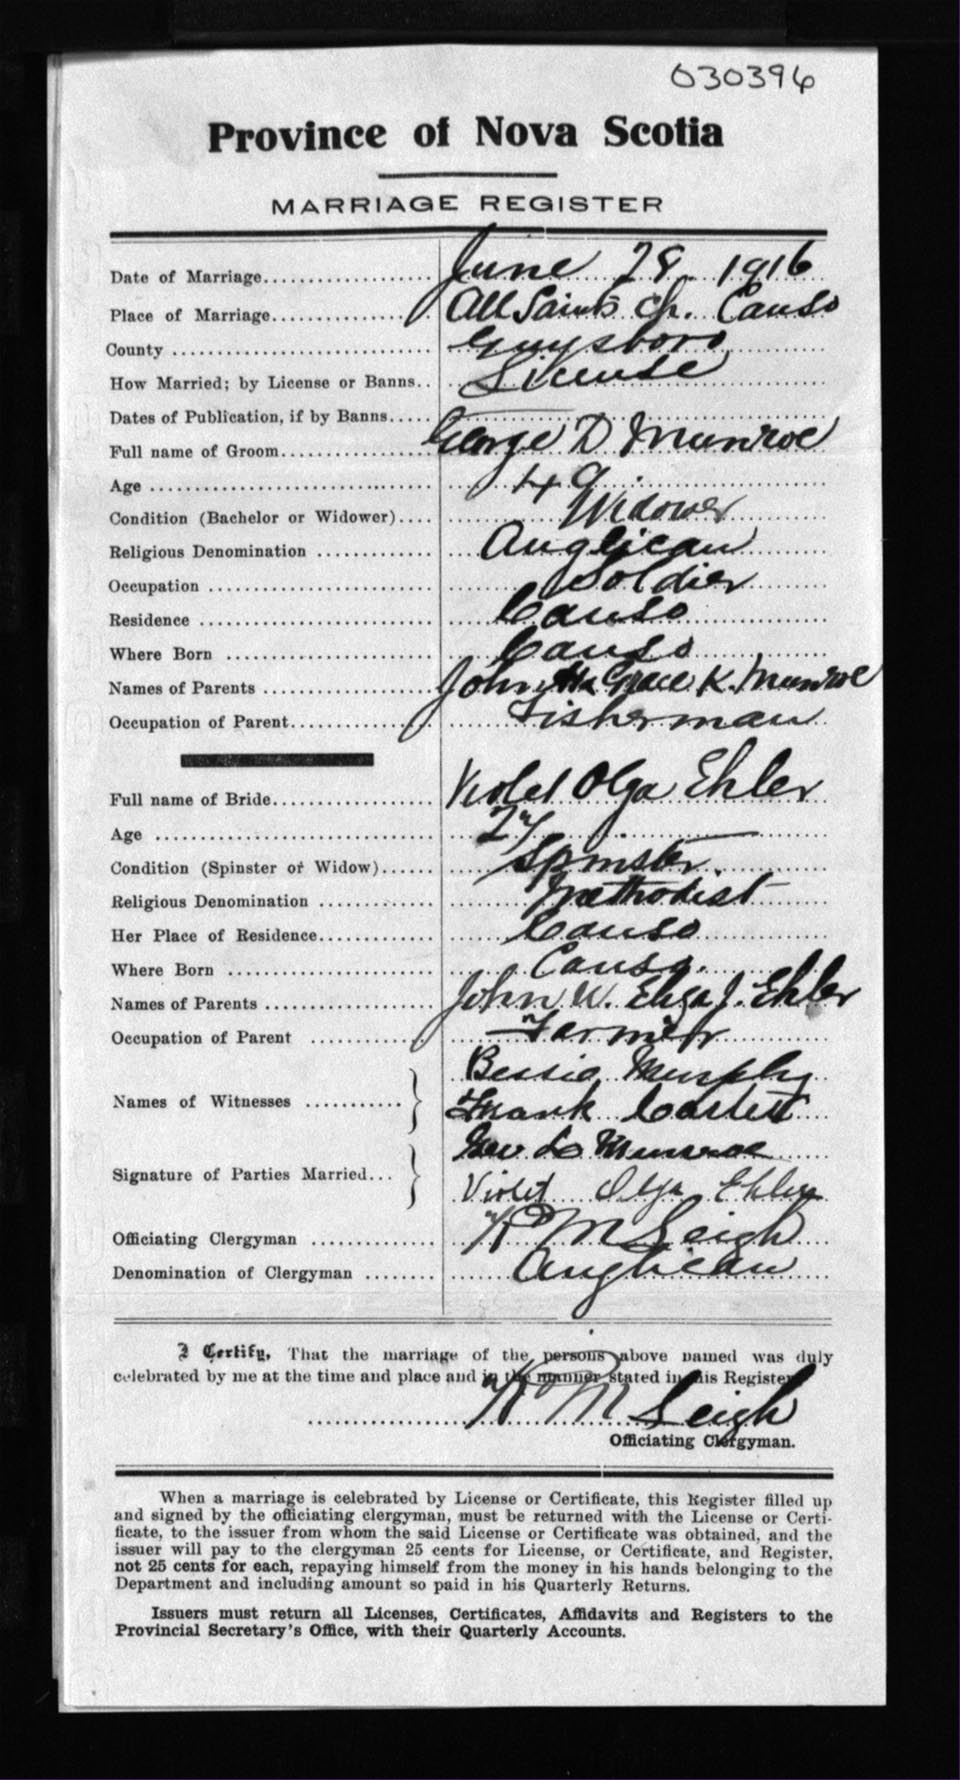 030396
Province of Nova Scotia
MARRIAGE REGISTER
Date of Marriage.................. June 28, 1916
Place of Marriage............... All Saints Ch. Canso
County .......................... Guysboro
How Married; by License or Banns.. License
Dates of Publication, if by Banns.....
Full name of Groom............... George D Munroe
Age ............................ 49
Condition (Bachelor or Widower).... Widower
Religious Denomination ............ Anglican
Occupation ....................... Soldier
Residence ........................ Canso
Where Born ..................... Canso
Names of Parents ................. John Grace K. Munroe
Occupation of Parent.............. Fisherman
Full name of Bride................ Violet Olga Ehler
Age ............................ 27
Condition (Spinster or Widow)...... Spinster
Religious Denomination ............ Methodist
Her Place of Residence............ Canso
Where Born ..................... Canso.
Names of Parents ................. John W. Eliza J. Ehler
Occupation of Parent ............. Farmer
Bessie Murphy
Names of Witnesses ...........
Frank
Geo D Munroe
Signature of Parties Married...
Violet Olga Ehler
Officiating Clergyman .............. M Leigh
Denomination of Clergyman ........ Anglican
I Certify, That the marriage of the persons above named was duly
celebrated by me at the time and place and in the manner stated in this Register.
M Leigh
Officiating Clergyman.
When a marriage is celebrated by License or Certificate, this Register filled up
and signed by the officiating clergyman, must be returned with the License or Certi-
ficate, to the issuer from whom the said License or Certificate was obtained, and the
issuer will pay to the clergyman 25 cents for License, or Certificate, and Register,
not 25 cents for each, repaying himself from the money in his hands belonging to the
Department and including amount so paid in his Quarterly Returns.
Issuers must return all Licenses, Certificates, Affidavits and Registers to the
Provincial Secretary's Office, with their Quarterly Accounts.